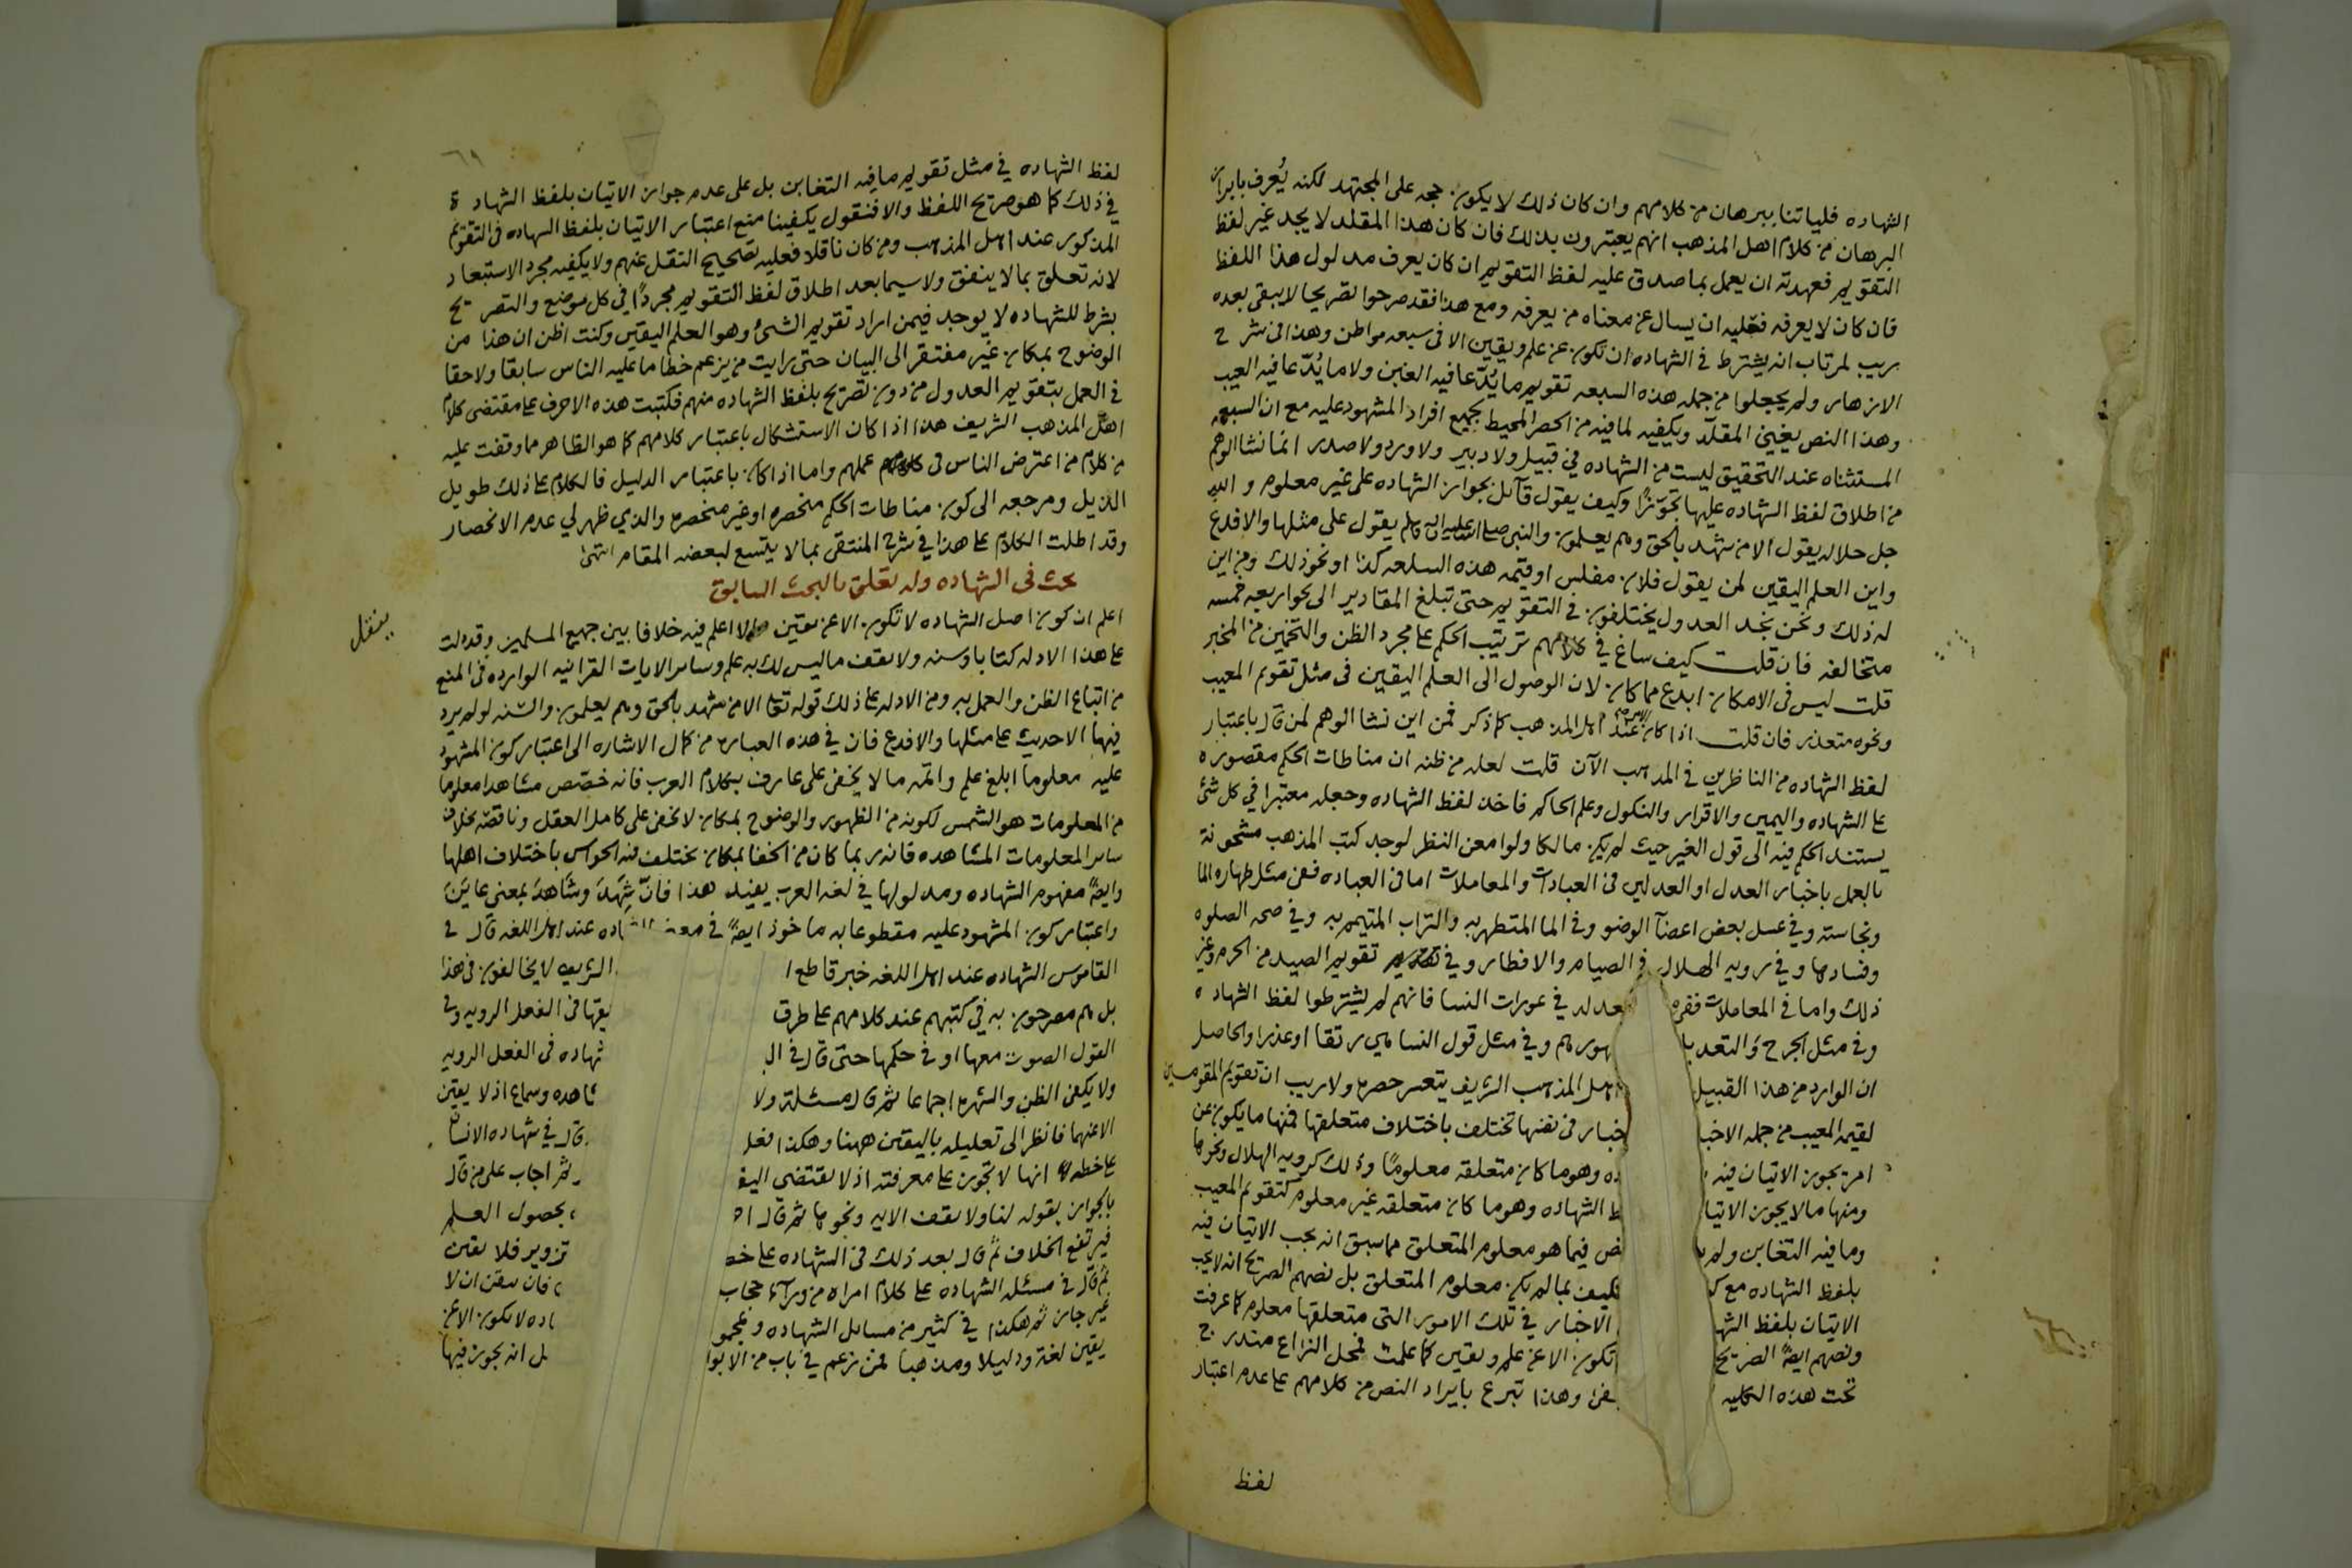 الشهاده فلياتنا ببرهان من كلامهم وان كان ذلك لا يكون حجه على المجتهد لكنه يُعرف بايراد
البرهان من كلام اهل المذهب انهم يعتبرون بذلك فان كان هذا المقلد لا يجد غير لفظ
التقويم فعهدته ان يعمل بما صدق عليه لفظ التقويم ان كان يعرف مدلول هذا اللفظ
فان كان لا يعرفه فعليه ان يسال عن معناه من يعرفه ومع هذا فقد صرحوا تصريحا لا يبقى بعده
ريب لمرتاب انه يشترط في الشهاده ان تكون عن علم ويقين الا في سبعه مواطن وهذا في شرح
الازهار ولم يجعلوا من جمله هذه السبعه تقويم ما يُدّعا فيه الغبن ولا ما يُدّعا فيه العيب
وهذا النص يغني المقلد ويكفيه لما فيه من الحصر المحيط بجميع افراد المشهود عليه مع ان السبعه
المستثناه عند التحقيق ليست من الشهاده في قبيل ولا دبير ولا ورد ولا صدر انما نشا الوهم
من اطلاق لفظ الشهاده عليها تجوّزًا وكيف يقول قآئل بجواز الشهاده على غير معلوم والله
جل جلاله يقول الا من شهد بالحق وهم يعلمون والنبي صلى الله عليه واله وسلم يقول على مثلها والا فدع
واين العلم اليقين لمن يقول فلان مفلس او قيمه هذه السلعه كذا او نحو ذلك ومن اين
له ذلك ونحن نجد العدول يختلفون في التقويم حتى تبلغ المقادير الى نحو اربعه خمسه
متخالفه فان قلت كيف ساغ في كلامهم ترتيب الحكم على مجرد الظن والتخمين من المخبر
قلت ليس في الامكان ابدع مما كان لان الوصول الى العلم اليقين في مثل تقويم المعيب
ونحوه متعذر فان قلت اذا كان عند اهل المذهب كما ذكر فمن اين نشا الوهم لمن قال باعتبار
لفظ الشهاده من الناظرين في المذهب الآن قلت لعله من ظنه ان مناطات الحكم مقصوره
على الشهاده واليمين والاقرار والنكول وعلم الحاكم فاخذ لفظ الشهاده وجعله معتبرا في كل شئ
يستند الحكم فيه الى قول الغير حيث لم يكن مالكا ولو امعن النظر لوجد كتب المذهب مشحونة
بالعمل باخبار العدل او العدلين في العبادات والمعاملات اما في العباده ففي مثل طهاره الما
ونجاسته وفي غسل بعض اعضآ الوضو وفي الما المتطهر به والتراب المتيمم به وفي صحه الصلوه
وفسادها وفي رويه الهلال في الصيام والافطار وفي تقويم الصيد من الحرم وغير
ذلك واما في المعاملات ففي عدله في عورات النسا فانهم لم يشترطوا لفظ الشهاده
وفي مثل الجرح والتعديل وفي مثل قول النسا هي رتقا او عذرا والحاصل
ان الوارد من هذا القبيل اهل المذهب الشريف يتعسر حصره ولا ريب ان تقويم المقومين
لقيمه المعيب من جمله الاخبا خبار في نفسها تختلف باختلاف متعلقها فمنها ما يكون عن
امر يجوز الاتيان فيه ده وهو ما كان متعلقه معلومًا وذلك كرويه الهلال ونحوها
ومنها ما لا يجوز الاتيا ط الشهاده وهو ما كان متعلقه غير معلوم كتقويم المعيب
وما فيه التغابن ولم ينص فيما هو معلوم المتعلق مما سبق انه يجب الاتيان فيه
بلفظ الشهاده مع فكيف بما لم يكن معلوم المتعلق بل نصهم الصريح انه لا يجب
الاتيان بلفظ الشها الاخبار في تلك الامور التي متعلقها معلوم كما عرفت
ونصهم ايضًا الصريح تكون الا عن علم ويقين كما علمت فمحل النزاع مندرج
تحت هذه الكليه وهذا تبرع بايراد النص من كلامهم على عدم اعتبار
لفظ
لفظ الشهاده في مثل تقويم ما فيه التغابن بل على عدم جواز الاتيان بلفظ الشهادة
في ذلك كما هو صريح اللفظ والا فنقول يكفينا منع اعتبار الاتيان بلفظ الشهاده في التقويم
المذكور عند اهل المذهب ومن كان ناقلا فعليه تصحيح النقل عنهم ولا يكفيه مجرد الاستبعاد
لانه تعلق بما لا ينفق ولا سيما بعد اطلاق لفظ التقويم مجردًا في كل موضع والتصريح
بشرط للشهاده لا يوجد فيمن اراد تقويم الشئ وهو العلم اليقين وكنت اظن ان هذا من
الوضوح بمكان غير مفتقر الى البيان حتى رايت من يزعم خطا ما عليه الناس سابقا ولاحقا
في العمل بتقويم العدول من دون تصريح بلفظ الشهاده منهم فكتبت هذه الاحرف على مقتضى كلام
اهل المذهب الشريف هذا اذا كان الاستشكال باعتبار كلامهم كما هو الظاهر مما وقفت عليه
من كلام من اعترض الناس في عملهم واما اذا كان باعتبار الدليل فالكلام على ذلك طويل
الذيل ومرجعه الى كون مناطات الحكم منحصره او غير منحصره والذي ظهر لي عدم الانحصار
وقد اطلت الكلام على هذا في شرح المنتقى بما لا يتسع لبعضه المقام انتهى
بحث في الشهاده وله تعلق بالبحث السابق
اعلم ان كون اصل الشهاده لا تكون الا عن يقين لا اعلم فيه خلافا بين جميع المسلمين وقد دلت
ينقل
على هذا الادله كتابا وسنه ولا تقف ما ليس لك به علم وساير الايات القرانيه الوارده في المنع
من اتباع الظن والعمل به ومن الادله على ذلك قوله تعالى الا من شهد بالحق وهم يعلمون والسنه لو لم يرد
فيها الا حديث على مثلها والا فدع فان في هذه العباره من كمال الاشاره الى اعتبار كون المشهود
عليه معلوما ابلغ علم واتمه ما لا يخفى على عارف بكلام العرب فانه خصّص مشاهدا معلوما
من المعلومات هو الشمس لكونه من الظهور والوضوح بمكان لا يخفى على كامل العقل وناقصه بخلاف
ساير المعلومات المشاهده فانه ربما كان من الخفا بمكان تختلف فيه الحواس باختلاف اهلها
وايضًا مفهوم الشهاده ومدلولها في لغه العرب يفيد هذا فانّ شَهِدَ وشَاهدَ بمعنى عايَنَ
واعتبار كون المشهود عليه مقطوعا به ماخوذ ايضًا في معنى الشهاده عند اهل اللغه قال في
القاموس الشهاده عند اهل اللغه خبر قاطع الشريف لا يخالفون في هذا
بل هم مصرحون به في كتبهم عند كلامهم على طرق يقها في الفعل الرويه وفي
القول الصوت معها او في حكمها حتى قال في ال شهاده في الفعل الرويه
ولا يكفي الظن والشهره اجماعا ثم قال مسئلة ولا شاهده وسماع اذ لا يقين
الا عنهما فانظر الى تعليله باليقين ههنا وهكذا فعل قال في شهاده الانسان
على خطه انها لا تجوز على معرفته اذ لا يقتضي اليق ثم اجاب على من قال
بالجواز بقوله لنا ولا تقف الايه ونحوها ثم قال بحصول العلم
فيرتفع الخلاف ثم قال بعد ذلك في الشهاده على خط تزوير فلا يقين
ثم قال في مسئله الشهاده على كلام امراه من ورآء حجاب فان تيقن ان لا
غير جاز ثم هكذا في كثير من مسايل الشهاده ومجمو اده لا تكون الا عن
يقين لغة ودليلا ومذهبا فمن زعم في باب من الابوا بل انه يجوز فيها